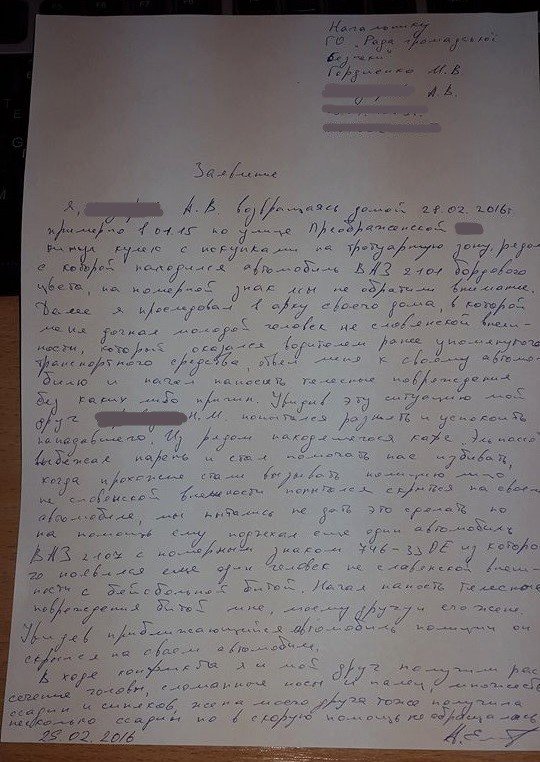 Начальнику
ГО „Рада громадської
безпеки"
Гордиенко М.В
А.В.
Заявление
Я, А.В. возвращаясь домой 28.02.2016г.
примерно в 01.15 по улице Преображенской
кинул кулек с покупками на тротуарную зону, рядом
с которой находился автомобиль ВАЗ 2101 бордового
цвета, на номерной знак мы не обратили внимание.
Далее я проследовал в арку своего дома, в которой
меня догнал молодой человек не славянской внеш-
ности, который оказался водителем ранее упомянутого
транспортного средства, отвел меня к своему автомо-
билю и начал наносить телесные повреждения
без каких либо причин. Увидив эту ситуацию мой
друг Н.М. попытался разнять и успокоить
нападавшего. Из рядом находящегося кафе
выбежал парень и стал помогать нас избивать,
когда прохожие стали вызывать полицию лицо
не славянской внешности попытался скрыться на своем
автомобиле, мы пытались не дать это сделать но
на помощь ему подъехал еще один автомобиль
ВАЗ 2107 с номерным знаком 746-33 DE из которо-
го появился еще один человек не славянской внеш-
ности с бейсбольной битой. Начал наность телесные
повреждения битой мне, моему другу и его жене.
Увидев приближающийся автомобиль полиции он
скрылся на своем автомобиле.
В ходе конфликта я и мой друг получили рас-
сечение головы, сломанные носы и палец, множество
ссадин и синяков, жена моего друга тоже получила
несколько ссадин но в скорую помощь не обращалась
29.02.2016